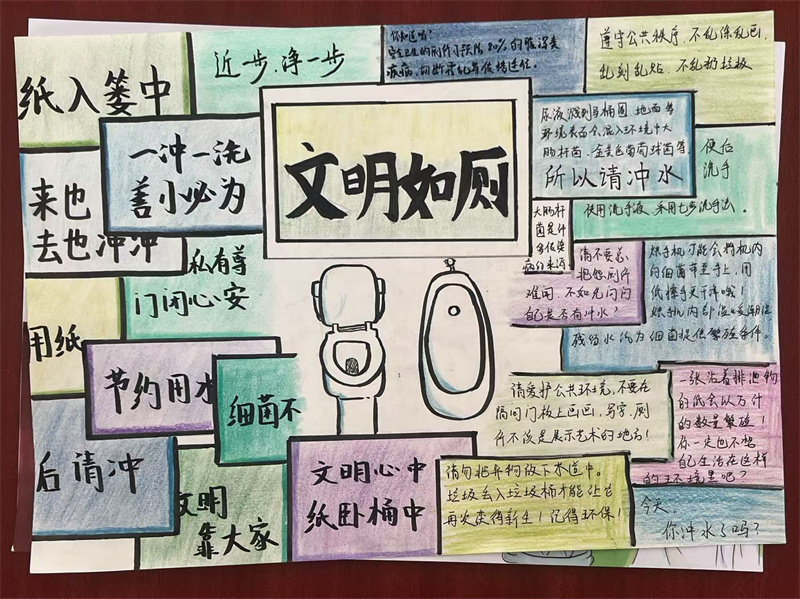 纸入篓中
近步,净一步
你知道吗?
安全卫生的厕所可预防80%的腹泻类
疾病,切断霍乱等传播途径。
遵守公共秩序,不乱涂乱画,
乱刻乱贴,不乱扔垃圾
一冲一洗
善小必为
文明如厕
尿液溅到马桶圈、地面等
环境表面会混入环境中大
肠杆菌、金黄色葡萄球菌等.
所以请冲水
便后
洗手
使用洗手液,采用七步洗手法。
来也
去也冲冲
私有尊
门闭心安
大肠杆
菌是
多传染
病的来源
请不要总
抱怨厕所
难闻,不如先问问
自己是否有冲水?
烘手机可能会将机内
的细菌带至手上,用
纸擦手更干净哦!
烘手机内部温暖潮湿
残留水汽为细菌提供繁殖条件。
用纸
节约用水
细菌不
请爱护公共环境,不要在
隔间门板上画画,写字,厕
所不该是展示艺术的地方!
一张沾着排泄物
的纸会以万计
的数量繁殖!
你一定也不想
自己生活在这样
的环境里吧?
后请冲
文明
靠大家
文明心中
纸卧桶中
请勿把弃物放下水道中。
垃圾丢入垃圾桶才能让它
再次获得新生!记得环保!
今天,
你冲水了吗?